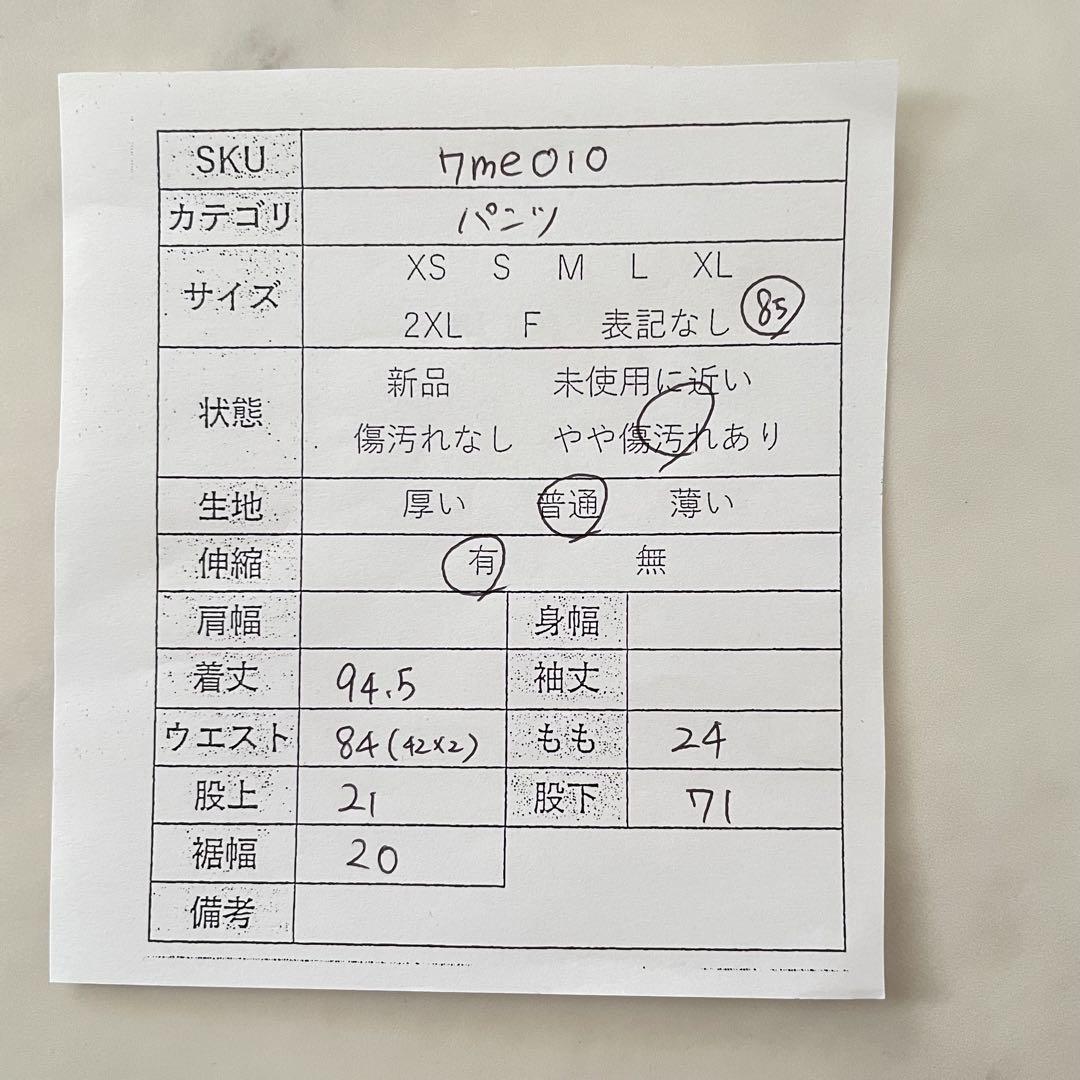 SKU 7me010
カテゴリ パンツ
サイズ XS S M L XL
2XL F 表記なし 85
状態 新品 未使用に近い
傷汚れなし やや傷汚れあり
生地 厚い 普通 薄い
伸縮 有 無
肩幅 身幅
着丈 94.5 袖丈
ウエスト 84(42×2) もも 24
股上 21 股下 71
裾幅 20
備考